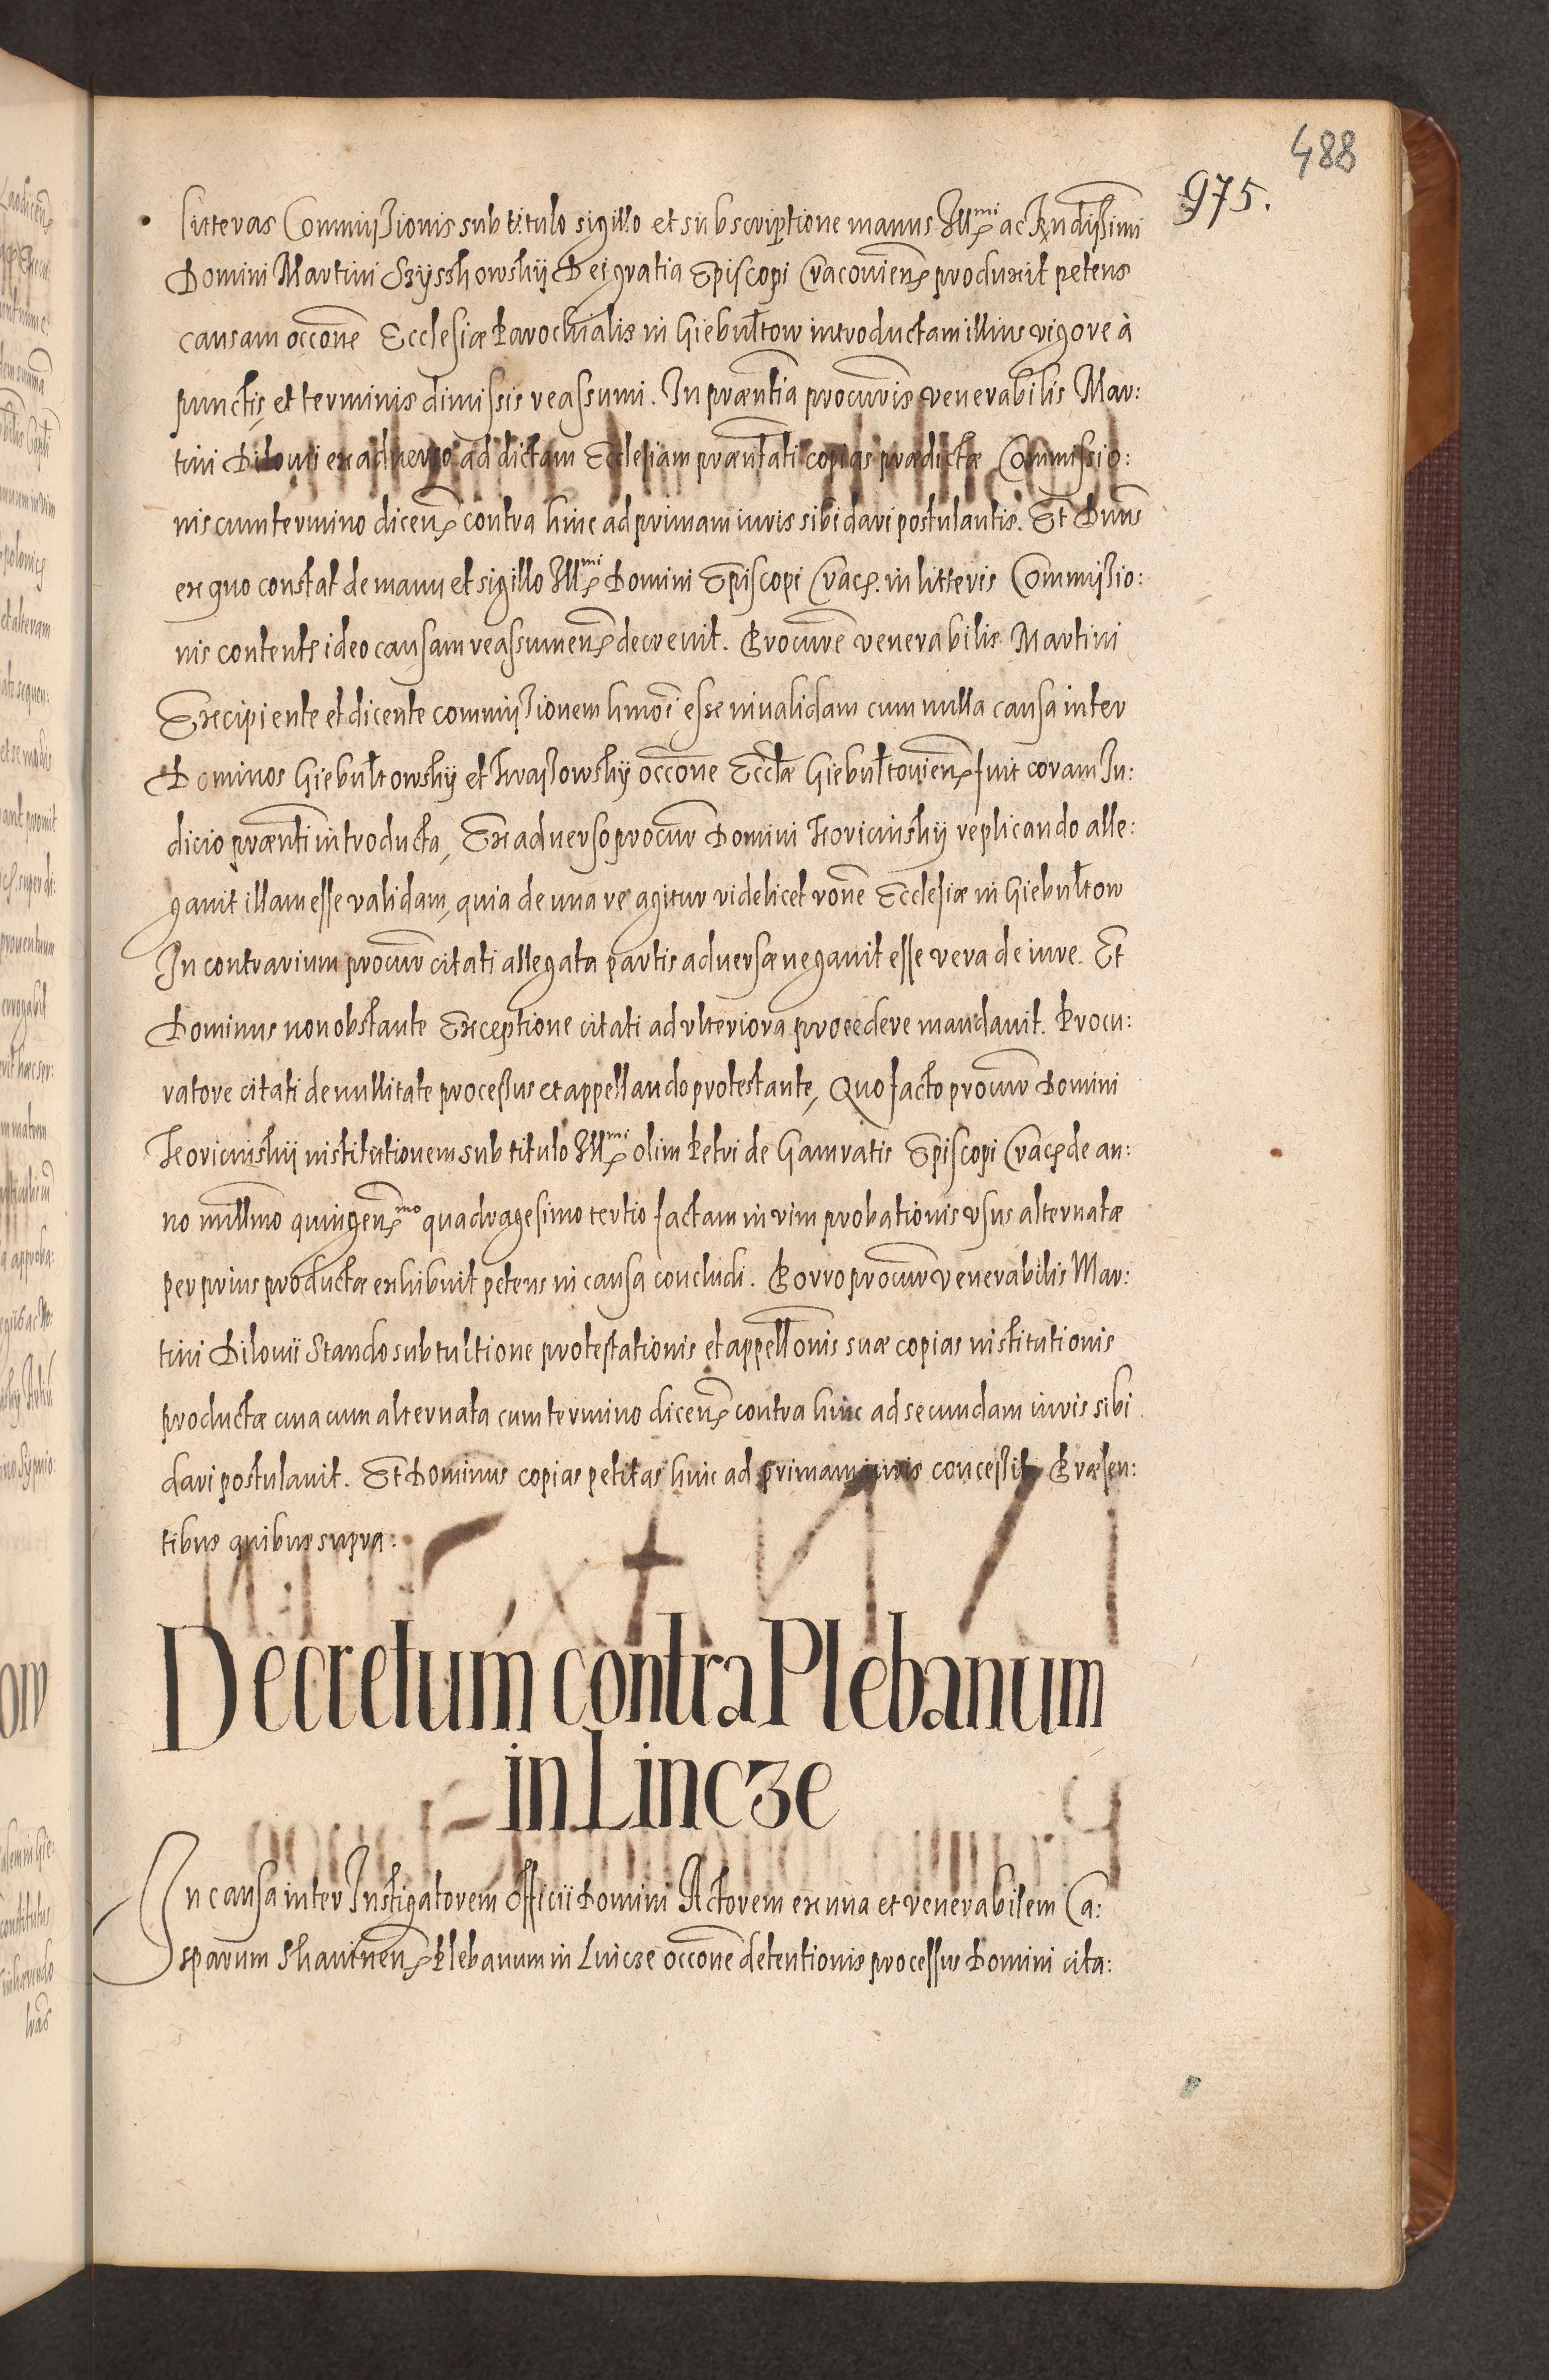 488
975.
litteras Commißionis sub titulo sigillo et subscriptione manus Illmi ac Rndißimi
Domini Martini Szysskowskÿ Dei gratia Episcopi Cracovien produxit petens
causam occone Ecclesiæ Parochialis in Giebułtow introductam illius vigore à
punctis et terminis dimissis reassumi. In præntia procuris venerabilis Mar:
tini Dilouii ex adverso ad dictam Ecclesiam præntati copias prædictæ Commissio:
nis cum termino dicen contra hinc ad primam iuris sibi dari postulantis. Et Dnus
ex quo constat de manu et sigillo Illmi Domini Episcopi Crac. in litteris Commißio:
nis content ideo causam reassumen decrevit. Procure venerabilis Martini
Excipiente et dicente commißionem hmoi esse invalidam cum nulla causa inter
Dominos Giebułtowskÿ et Kraßowskÿ occone Eccłæ Giebułtovien fuit coram Iu:
dicio prænti introducta, Ex adverso procur Domini Koricinskÿ replicando alle:
gavit illam esse validam, quia de una re agitur videlicet rone Ecclesiæ in Giebułtow
In contrarium procur citati allegata partis adversæ negavit esse vera de iure. Et
Dominus non obstante Exceptione citati ad vlteriora procedere mandavit. Procu:
ratore citati de nullitate proceßus et appellando protestante, Quo facto procur Domini
Koricinskÿ institutionem sub titulo Illmi olim Petri de Gamratis Episcopi Crac de an:
no millmo quingenmo quadragesimo tertio factam in vim probationis vsus alternatæ
per prius productæ exhibuit petens in causa concludi. Porro procur venerabilis Mar:
tini Dilouii Stando sub tuitione protestationis et appellonis suæ copias institutionis
productæ una cum alternata cum termino dicen contra hinc ad secundam iuris sibi
dari postulavit. Et Dominus copias petitas hinc ad primam iuris conceßit Præsen:
tibus quibus supra:
Decretum contra Plebanum
in Lincze
In causa inter Instigatorem Officii Domini Actorem ex una et venerabilem Ca:
sparum Skavinen Plebanum in Lincze occone detentionis processus Domini cita: